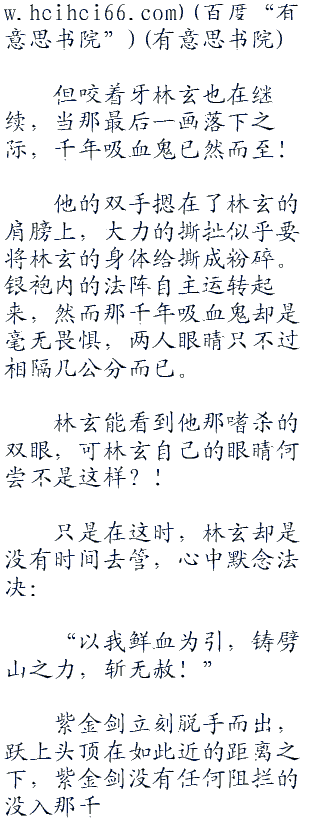 w.hcihci66.com)(百度“有
意思书院”)(有意思书院)
但咬着牙林玄也在继
续，当那最后一画落下之
际，千年吸血鬼已然而至！
他的双手摁在了林玄的
肩膀上，大力的撕扯似乎要
将林玄的身体给撕成粉碎。
银袍内的法阵自主运转起
来，然而那千年吸血鬼却是
毫无畏惧，两人眼睛只不过
相隔几公分而已。
林玄能看到他那嗜杀的
双眼，可林玄自己的眼睛何
尝不是这样？！
只是在这时，林玄却是
没有时间去管，心中默念法
决：
“以我鲜血为引，铸劈
山之力，斩无赦！”
紫金剑立刻脱手而出，
跃上头顶在如此近的距离之
下，紫金剑没有任何阻拦的
没入那千